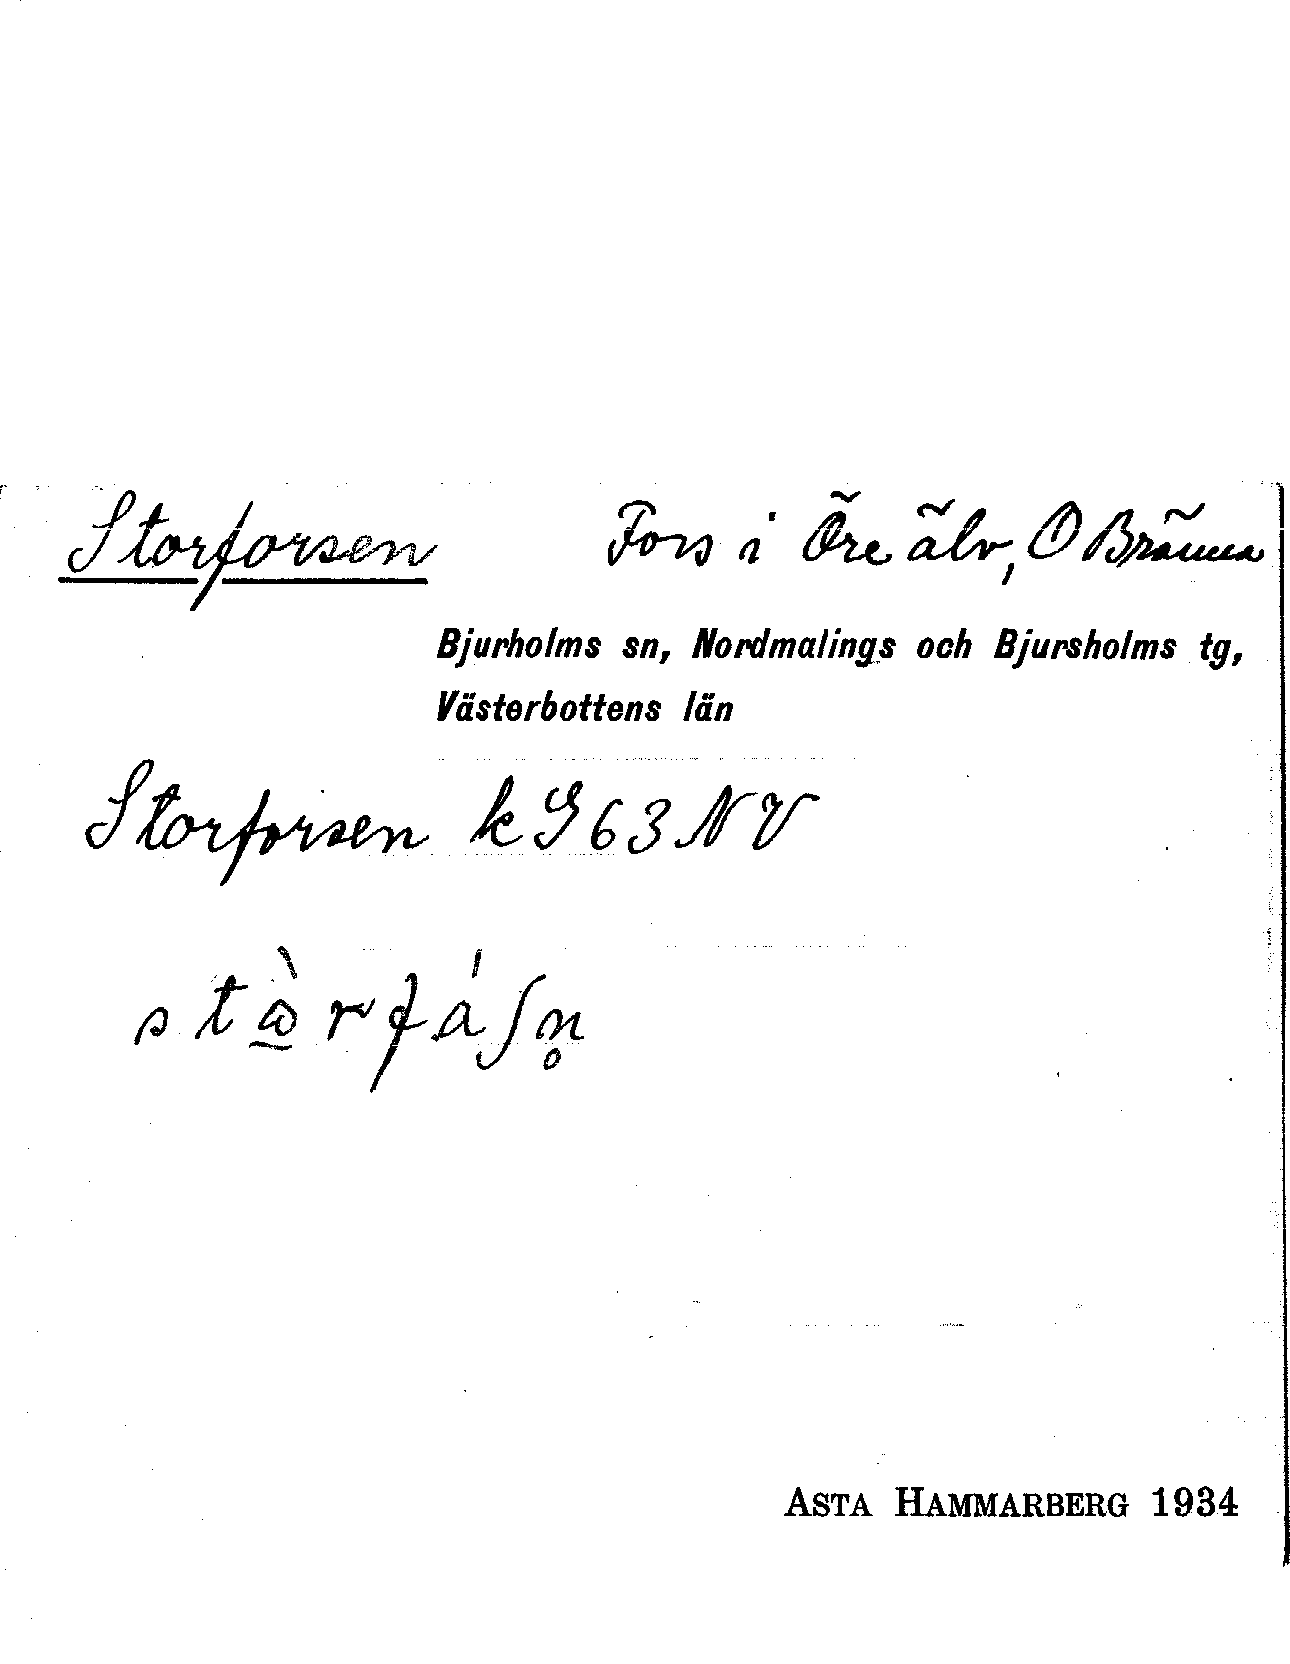 Storforsen Fors i Öre älv, O Bränna
Bjurholms sn, Nordmalings och Bjursholms tg,
Västerbottens län
Storforsen k G 63 NV
Asta Hammarberg 1934